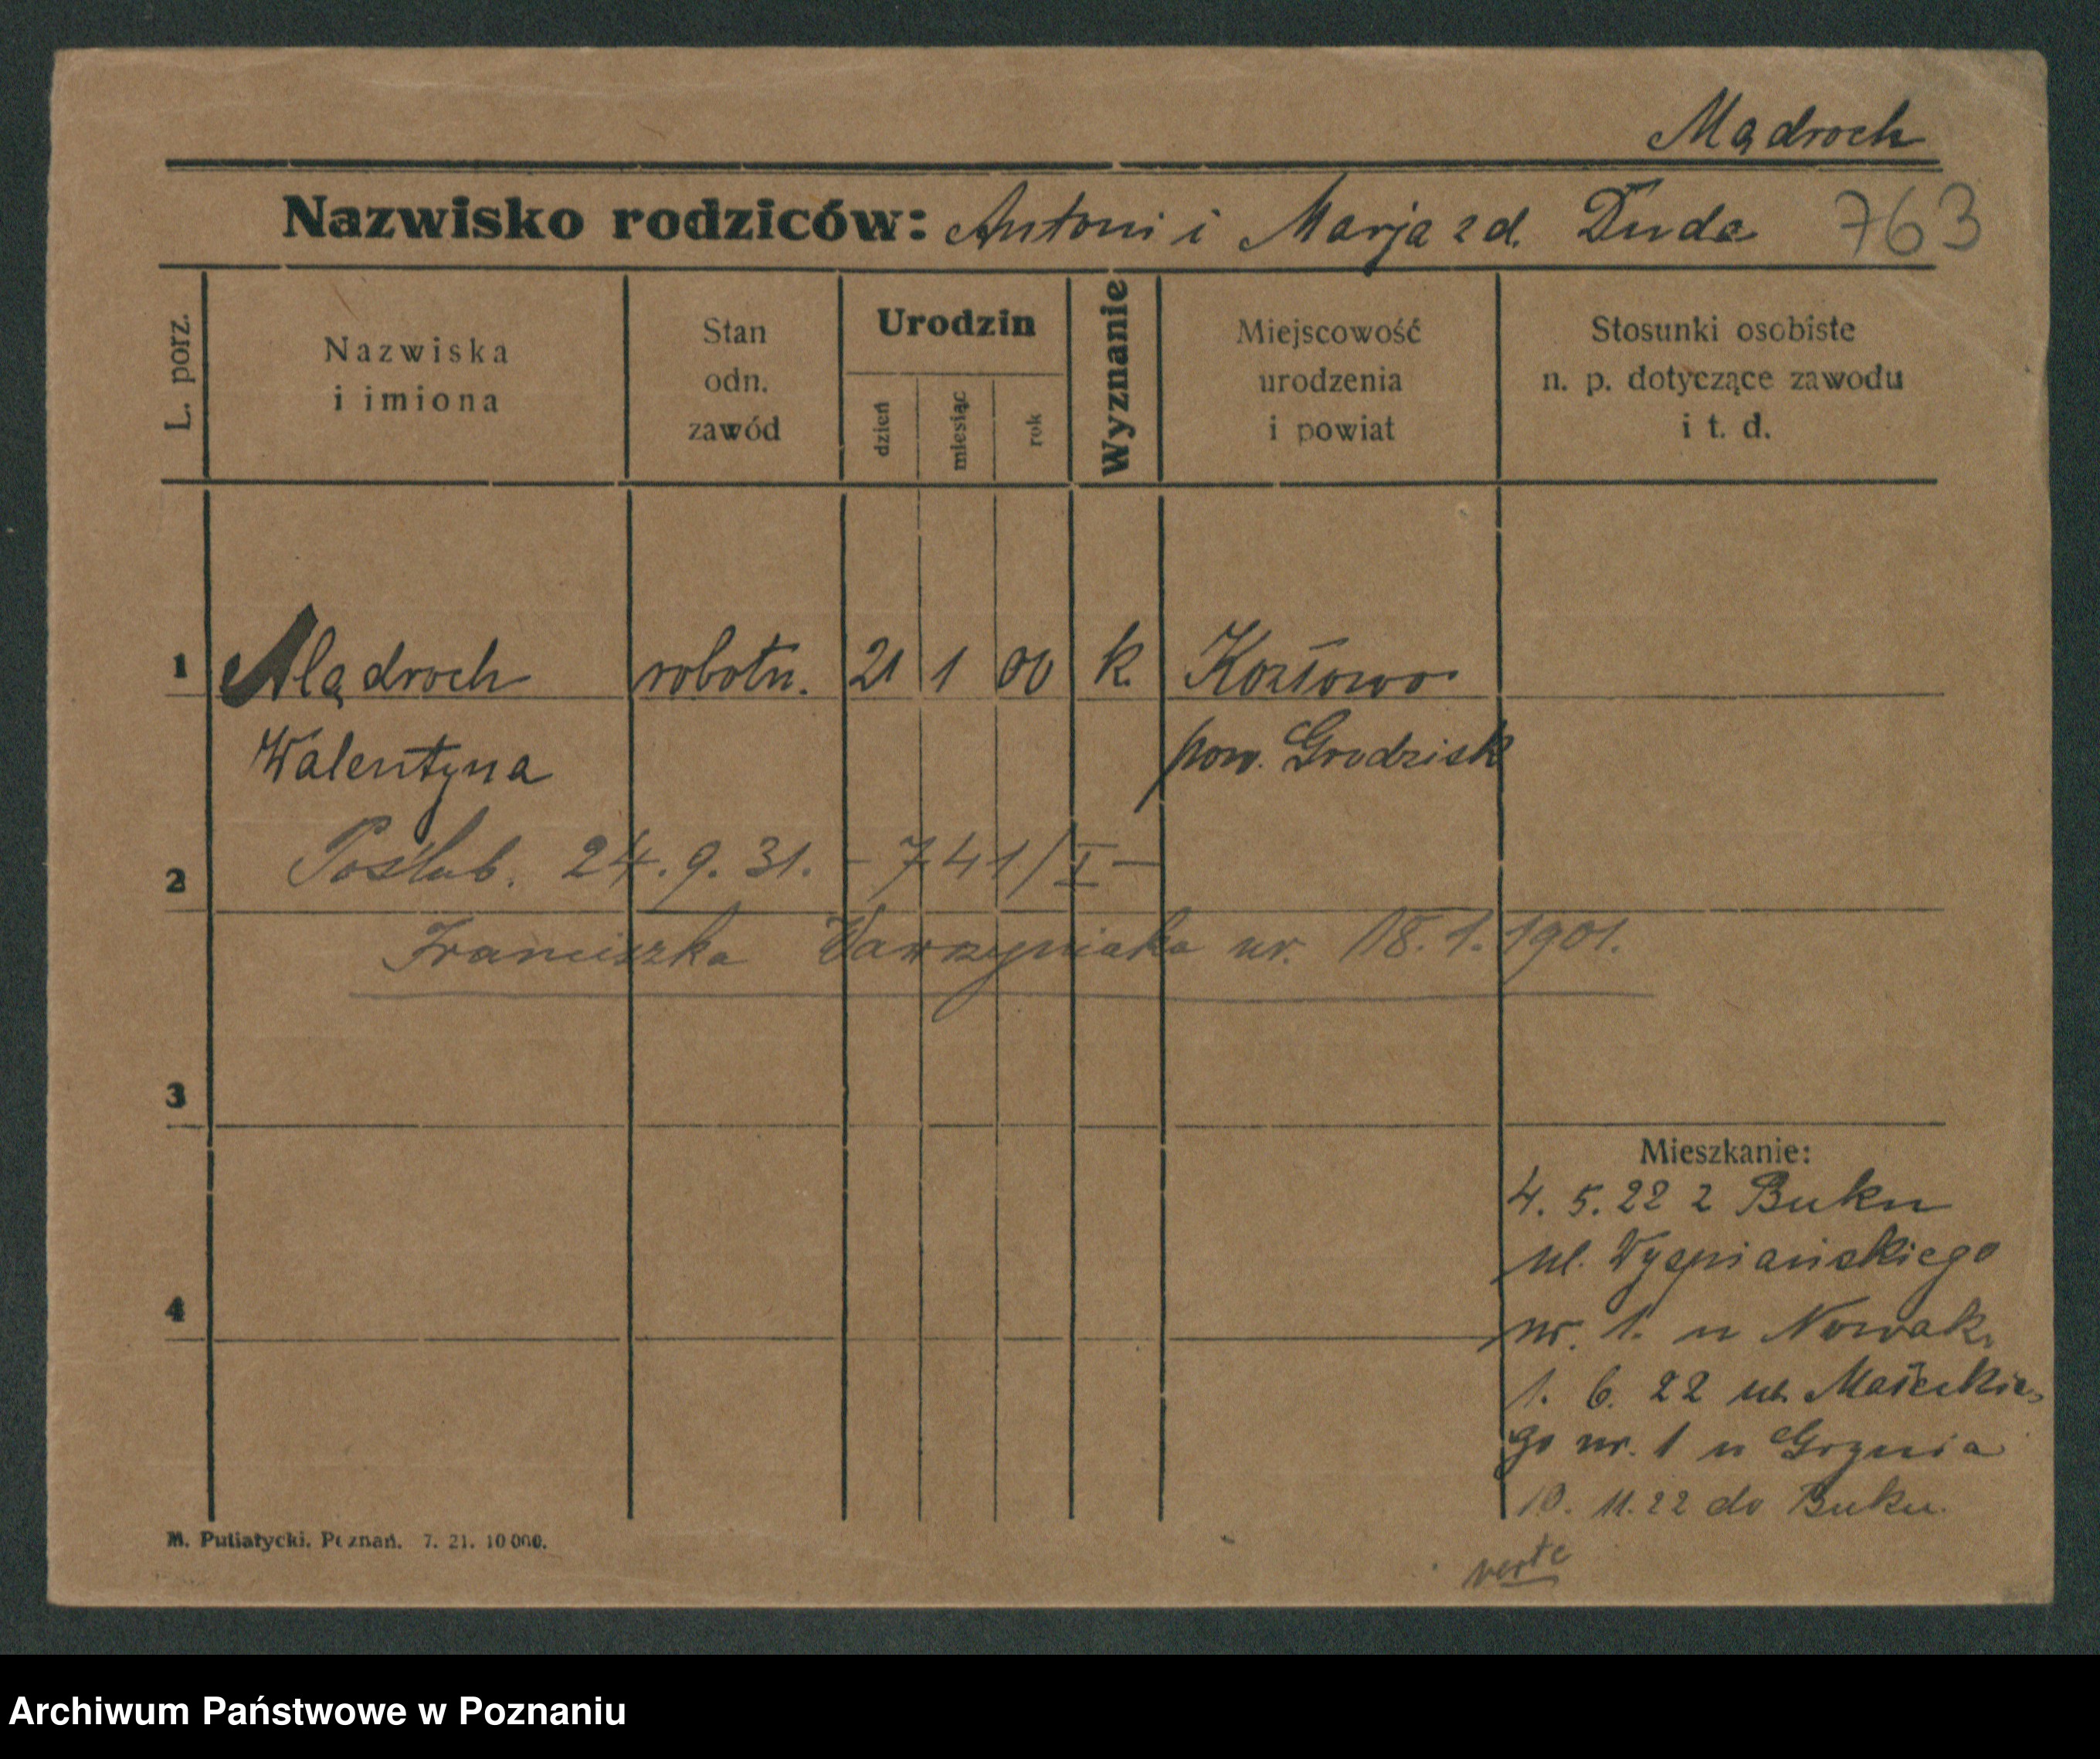 Mądroch
Nazwisko rodziców: Antoni i Marja z d. Duda 763
L. porz.
Nazwiska
i imiona
Stan
odn.
zawód
Urodzin
dzień
miesiąc
rok
Wyznanie
Miejscowość
urodzenia
i powiat
Stosunki osobiste
n. p. dotyczące zawodu
i t. d.
1 Mądroch robotn. 21 1 00 k. Kozłowo
Walentyna pow. Grodzisk
2 Poślub. 24. 9. 31. - 741/I -
Franciszka Wawrzyniaka ur. 18. 1. 1901.
3
Mieszkanie:
4. 5. 22 z Buku
ul. Wyspiańskiego
4
nr. 1. u Nowak.
1. 6. 22 ul.
go nr. 1 u Grynia
10. 11. 22 do Buku.
M. Putiatycki, Poznań. 7. 21. 10 000.
verte
Archiwum Państwowe w Poznaniu